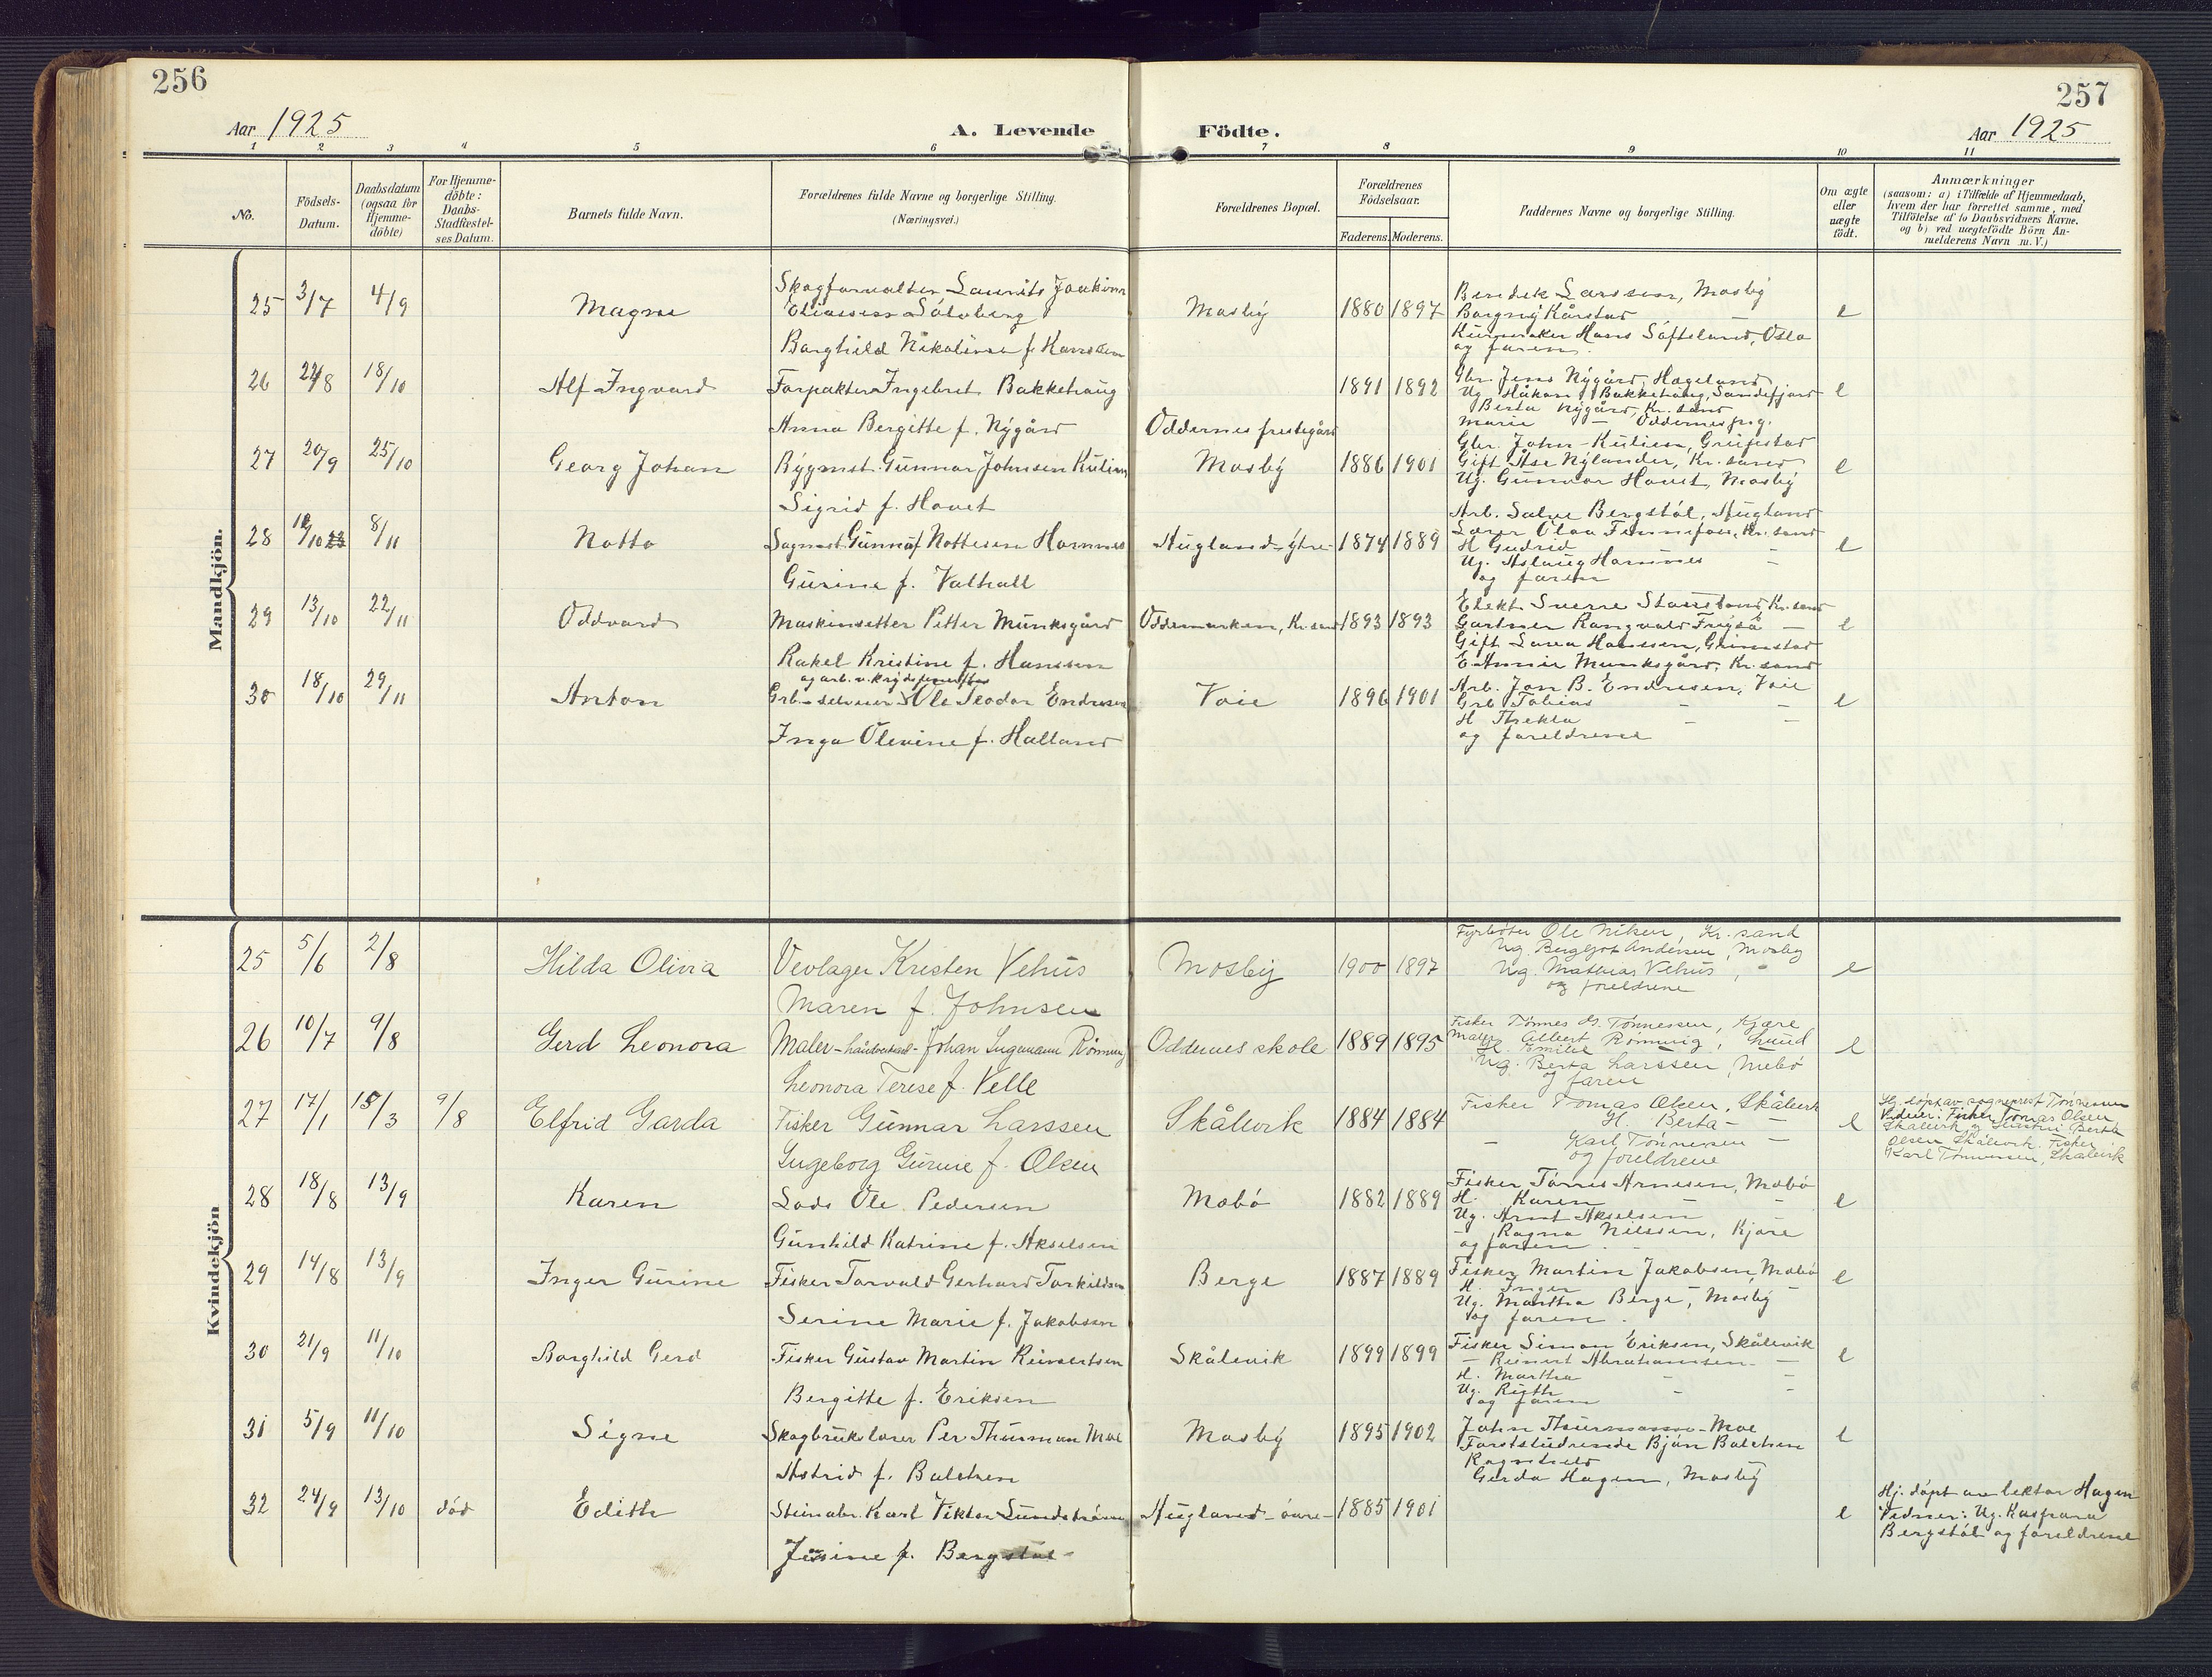 256
257
Aar 1925
A. Levende
Födte.
Aar 1925
1 2 3 4 5 6 7 8 9 10 11
No.
Födsels-
Datum.
Daabsdatum
(ogsaa for
Hjemme-
döbte)
For Hjemme-
döbte:
Daabs-
Stadfæstel-
ses Datum.
Barnets fulde Navn.
Forældrenes fulde Navne og borgerlige Stilling.
(Næringsvei.)
Forældrenes Bopæl.
Forældrenes
Födselsaar.
Faderens. Moderens.
Faddernes Navne og borgerlige Stilling.
Om ægte
eller
uægte
födt.
Anmærkninger
(saasom: a) i Tilfælde af Hjemmedaab,
hvem der har forrettet samme, med
Tilföielse af to Daabsvidners Navne.
og b) ved uægtefödte Börn An-
melderens Navn m.V.)
Mandkjön.
25 3/7 4/9 Magne
Skogforvalter Laurits Joakim
Eliassen Sólvberg
Borghild Nikoline f.
Mosbÿ 1880 1897
Bendik Larssen, Mosbÿ
Borgnÿ Kårstad
Hans Söfteland, Oslo
og faren.
e
26 18/10 Alf Ingvard
Forpakter Ingebret Bakkehaug
Anna Bergitte f. Nÿgård
Oddernes prestegård
1891 1892
Gbr. Jens Nÿgård, Hægeland
Ug. Håkon Bakkehaug, Sandefjord
Berta Nÿgård, Kr.sand
Marie - Oddernes prg.
e
27 20/9 25/10 Georg Johan
Bÿgmst. Gunnar Johnsen Kulien
Sigrid f. Hovet
Mosbÿ 1886 1901
Gbr. John Kulien, Greipstad
Gift Åse Nÿlander, Kr.sand
Ug. Gunvor Hovet, Mosbÿ
e
28 8/11 Notto
Sagmst. Gunnuf Nottesen Hornnes
Gurine f. Valhall
Auglands-ÿtre- 1874 1889
Arb. Salve Bergstól, Augland
Lærer Olav Kr.sand
H. Gudrid
Ug. Aslaug Hornnes -
og faren
e
29 13/10 22/11 Oddvard
Maskinsetter Petter Munksgård
Rakel Kristine f. Hanssen
Oddemarken, Kr.sand 1893 1893
Elekt. Sverre Kr.sand
Gartner Rangvald Frÿså -
Gift Lovea Hanssen, Grimstad
E. Annie Munksgård, Kr.sand
e
30 18/10 29/11 Anton
og arb. v.
Grb.- Ole Teodor Endresen
Inga Olevine f. Halland
Voie 1896 1901
Arb. Jon B. Endresen, Voie
Grb Tobias - -
H Thekla - -
og foreldrene
e
Kvindekjön
25 5/6 2/8 Hilda Olivia
Vevlager Kristen Vehus
Maren f. Johnsen
Mosbÿ 1900 1897
Fyrböter Ole Nilsen, Kr.sand
Ug Bergljot Andersen, Mosby
Ug. Mathias Vehus, -
og foreldrene
e
26 10/7 9/8 Gerd Leonora
Maler-håndverker- Johan Ingemann Rönning
Leonora Terese f. Velle
Oddernes skole 1889 1895
Fisker Tönnes G. Tönnessen, Kjære
Maler Albert Rönnig, Lund
H. Emilie
Ug. Berta Larssen, Mebö
og faren
e
27 17/1 15/3 9/8 Elfrid Garda
Fisker Gunnar Larssen
Ingeborg Gurine f. Olsen
Skålevik 1884 1884
Fisker Tomas Olsen, Skålevik
H. Berta -
- Karl Tönnesen -
og foreldrene
e
Hj. döpt av sogneprest Tönnessen
Vidner: Fisker Tomas Olsen
Skålevik og Hustru Berta
Olsen Skålevik. Fisker
Karl Tönnessen, Skålevik
28 18/8 13/9 Karen
Lods Ole Pedersen
Gunhild Katrine f. Akselsen
Mebó 1882 1889
Fisker Tórres Arnesen, Mebó
H. Karen - -
Ug. Arnt Akselsen -
- Ragna Nilssen, Kjære
og faren.
e
29 14/8 13/9 Inger Gurine
Fisker Torvald Gerhard Torkildsen
Serine Marie f. Jakobsen
Berge 1887 1889
Fisker Martin Jakobsen, Mebó
H. Inger -
Ug. Martha Berge, Mosbÿ
og faren.
e
30 21/9 11/10 Borghild Gerd
Fisker Gustav Martin Reinertsen
Bergitte f. Eriksen
Skålevik 1899 1899
Fisker Simon Eriksen, Skålevik
- Reinert Abrahamsen -
H. Martha - -
Ug. Ruth - -
og faren
e
31 5/9 11/10 Signe
Skogbrukslærer Per Thurman Moe
Astrid f. Balchen
Mosbÿ 1895 1902
John Thurmann-Moe
Forststuderende Bjón Balchen
Ragnhild
Gerda Hagen, Mosbÿ
e
32 24/9 13/10 dód Edith
Steinarb. Karl Viktor Lundstróm
Jósine f. Bergstól-
Augland-óvre- 1885 1901
e
Hj. dópt av lektor Hagen
Vidner: Ug.
Bergstól og foreldrene